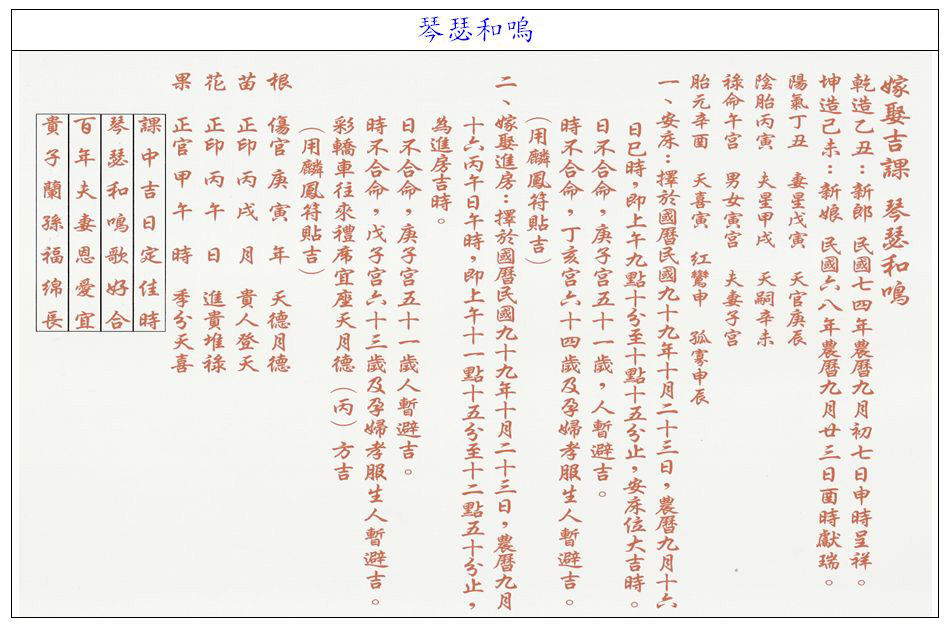 琴瑟和嗚
嫁娶吉課 琴瑟和鳴
乾造乙丑：新郎 民國七四年農曆九月初七日申時呈祥。
坤造己未：新娘 民國六八年農曆九月廿三日酉時獻瑞。
陽氣丁丑 妻星戊寅 天官庚辰
陰胎丙寅 夫星甲戌 天嗣辛未
祿命午宮 男女寅宮 夫妻子宮
胎元辛酉 天喜寅 紅鸞申 孤寡申辰
一、安床：擇於國曆民國九十九年十月二十三日，農曆九月十六
日巳時，即上午九點十分至十點十五分止，安床位大吉時。
日不合命，庚子宮五十一歲，人暫避吉。
時不合命，丁亥宮六十四歲及孕婦孝服生人暫避吉。
（用麟鳳符貼吉）
二、嫁娶進房：擇於國曆民國九十九年十月二十三日，農曆九月
十六丙午日午時，即上午十一點十五分至十二點五十分止，
為進房吉時。
日不合命，庚子宮五十一歲人暫避吉。
時不合命，戊子宮六十三歲及孕婦孝服生人暫避吉。
彩轎車往來禮席宜座天月德（丙）方吉
（用麟鳳符貼吉）
根 傷官庚寅 年 天德月德
苗 正印丙戌 月 貴人登天
花 正印丙午 日 進貴堆祿
果 正官甲午 時 季分天喜
課中吉日定佳時
琴瑟和鳴歌好合
百年夫妻恩愛宜
貴子蘭孫福綿長